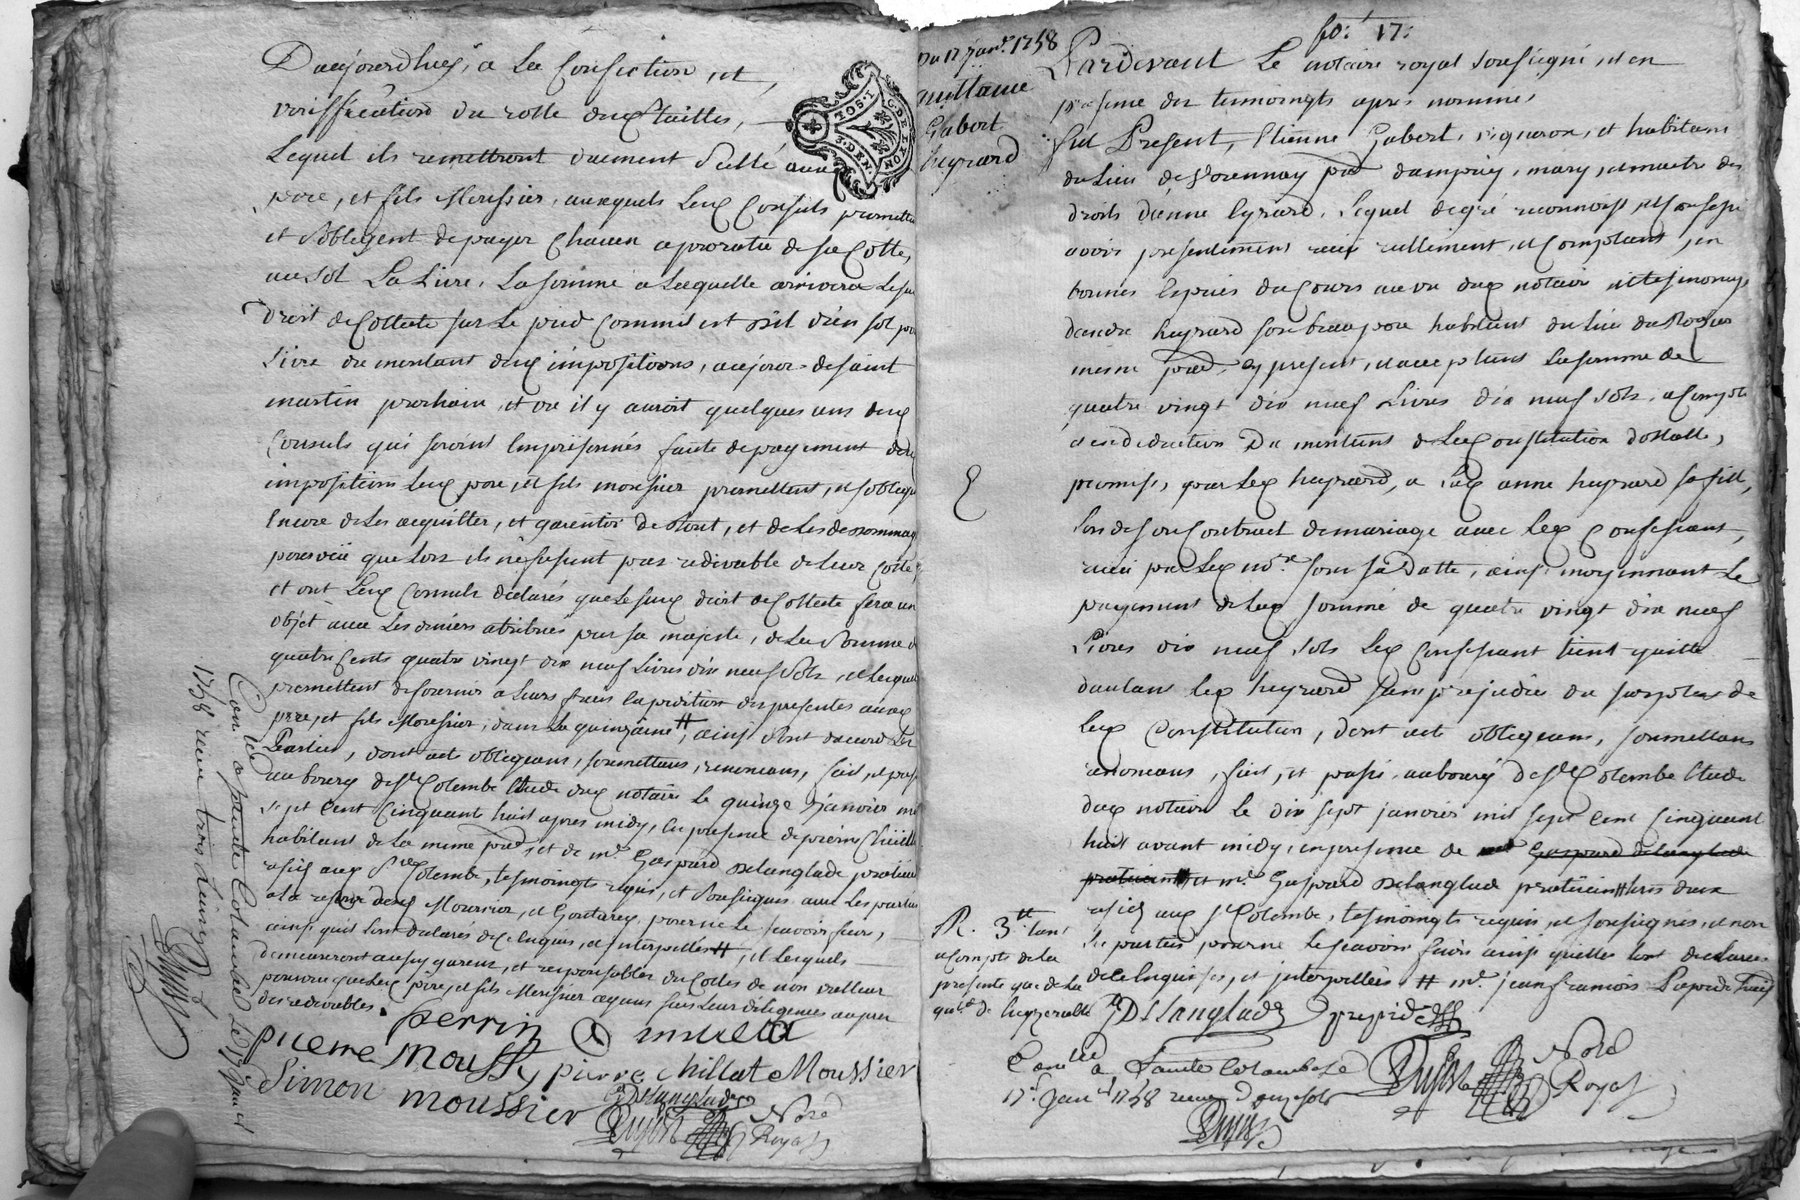 D'aujourdhuy, a la Confection, et
veriffication du rolle desd tailles,
Lequel ils remettront duement Scellé auxd
pere, et fils Moussier, auxquels lesd Consuls promettent
et s'obligent de payer Chacun aprorata de sa Cotte,
au sol La Livre, La somme a Laquelle arrivera Led
droit de Collecte sur Le pied Commil est dit d'un sol par
Livre du montant desd impositions, au jour de saint
martin prochain, et ou il y auroit quelques uns desd
Consuls qui seroint Emprisonnés faute de payement desd
impositions Lesd pere, et fils moussier promettent, et s'obligent
Encore de Les acquitter, et garentir de tout, et de Les dedommager
pourveu que Lors ils ne fussent pas redevable de Leur Cotte,
et ont Lesd Consuls déclarés que Le susd droit de Collecte fera un
objet avec Les deniers atribués par sa majesté, de La Somme de
quatre Cents quatre vingt dix neuf Livres dix neuf Sols, et Lesquels
promettent de fournir a Leurs frais Expedition des presentes auxd
pere, et fils Moussier, dans La quinzaine #, ainsi Sont d'accord Les
Parties, dont acte obligeans, soumettans, renoncans, fait, et passé
au bourg de Ste Colombe Etude dud notaire Le quinze Janvier mil
sept Cent Cinquante huit apres midy, En presence de pierre Chillet
habitant de La meme pnd, et de mr Gaspard Delanglade praticien
residt aud Ste Colombe, tesmoingts requis, et Soussignes avec Les parties
a la reserve desd Moussier, et Goutarey, pour ne Le scavoir faire,
ainsi quils Sont déclarés de ce Enquis, et interpellés #, et Lesquels
demeureront aussy garens, et responsables des Cottes de non valleur
pourveu que Lesd pere, et fils Moussier ayent fait Leur diligences aupres
des redevables.
perrin mulea
pierre Moussy pierre chillat Moussier
Simon moussier
Delanglade
Dujast Nore
Royal
Con lé a sainte Colombe Le 17 Janv
1758 recu trois Livres
Dujast
fo: 17:
Du 17 janr. 1758
quittance
Gabert
heyrard
Pardevant Le notaire royal soussigné, et en
presence des temoingts apres nommés
fut Present, Etienne Gabert, vigneron, et habitant
du Lieu de pnd dampuy, mary, et maitre des
droits d'anne Eyrard, Lequel de gré reconnoist, et Confesse
avoir presentement recu reellement, et Comptant, en
bonnes Especes du Cours au vu dud notaire et tesmoings
d'andre heyrard son beaupere habitant du Lieu du Rozier
mesme pnd, Cy present, et acceptant La somme de
quatre vingt dix neuf Livres dix neuf sols, a Compte
et en deduction Du montant de La Constitution dottalle,
promise, par Led heyrard, a Lad anne heyrard sa fille,
Lors de son Contract de mariage avec Led Confessant,
recu par Led nore sous sa Datte, ainsi moyennant Le
payement de Lad somme de quatre vingt dix neuf
Livres dix neuf sols Led Confessant tient quitte
d'autant Led heyrard sans prejudice du surplus de
lad Constitution, dont acte obligeans, soumettans
renoncans, fait, et passé au bourg de Ste Colombe Etude
dud notaire le dix sept janvier mil sept Cent Cinquante
huit avant midy, en presence de Gaspard delanglade
praticien et mr Gaspard Delanglade praticien # tous deux
residt aud Ste Colombe, tesmoingts requis, et soussignés, et non
Les parties pour ne Le scavoir faire ainsi quelles sont declarées
de ce Enquises, et interpellées # mr jean francois
R. 3tt tant
a Compte de La
presente que de La
quitce de
Delanglade
Con lé a Sainte Colombe Le
17e Janr 1758 recu Douze sols
Dujast
Dujast Nore
Royal